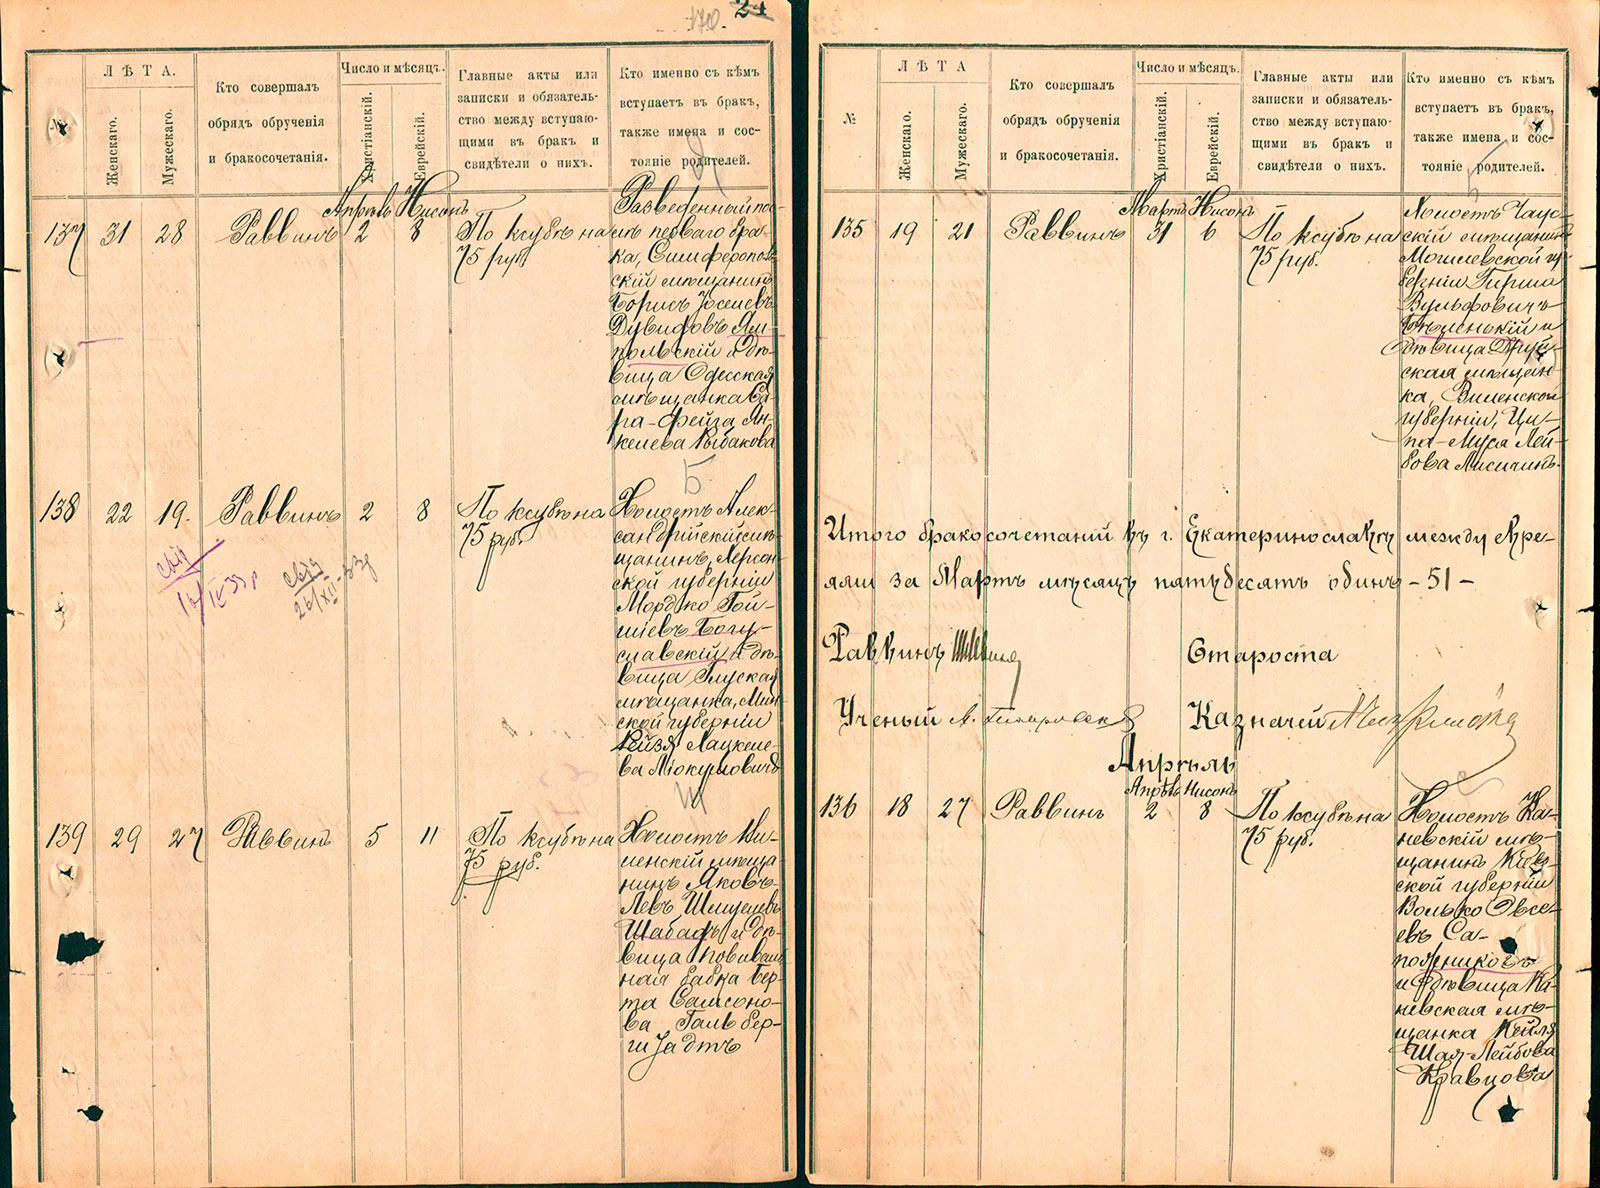 170. 24
ЛѢТА.
Женскаго.
Мужескаго.
Кто совершалъ
обрядъ обрученія
и бракосочетанія.
Число и мѣсяцъ.
Христіанскій.
Еврейскій.
Главные акты или
записки и обязатель-
ство между вступаю-
щими въ бракъ и
свидѣтели о нихъ.
Кто именно съ кѣмъ
вступаетъ въ бракъ,
также имена и сос-
тояніе родителей.
Апрѣль Нисонъ
137 31 28 Раввинъ 2 8 По ксубѣ на
75 руб.
Разведенный пос-
лѣ перваго бра-
ка, Симферополь
скій мѣщанинъ
Борисъ Іоселевъ
Дувидовъ Ям-
польскій и дѣ-
вица Одесская
мѣщанка Са-
ра-Фейга Ян-
келева Рыбакова
Б
138 22 19. Раввинъ 2 8 По ксубѣ на
75 руб.
Холостъ Алек-
сандрійскій мѣ-
щанинъ, Херсон-
ской губерніи
Мордко Гой-
шіевъ Богу-
славскій и дѣ-
вица Глуская
мѣщанка, Мин-
ской губерніи
Рейзя Хацкеле-
ва
26/XII-33г
Ш
139 29 27 Раввинъ 5 11 По ксубѣ на
75 руб.
Холостъ Ви-
ленскій мѣща-
нинъ Яковъ-
Левъ
Шабадъ и дѣ-
вица повиваль
ная бабка Бер-
та Самсоно-
ва Гальбер-
штадтъ
№
ЛѢТА
Женскаго.
Мужескаго.
Кто совершалъ
обрядъ обрученія
и бракосочетанія.
Число и мѣсяцъ.
Христіанскій.
Еврейскій.
Главные акты или
записки и обязатель-
ство между вступаю-
щими въ бракъ и
свидѣтели о нихъ.
Кто именно съ кѣмъ
вступаетъ въ бракъ,
также имена и сос-
тояніе родителей.
Б
Мартъ Нисонъ
135 19 21 Раввинъ 31 6 По ксубѣ на
75 руб.
Холостъ Чаус-
скій мѣщанинъ
Могилевской гу-
берніи Гирша
Вульфовичъ
Бѣленькій и
дѣвица Друй-
ская мѣщан-
ка, Виленской
губерніи, Ци-
па-Муся Лей-
бова Лисичинъ.
Итого бракосочетаній въ г. Екатеринославѣ между Евре-
ями за Мартъ мѣсяцъ пятьдесятъ одинъ -51-
Раввинъ Староста
Ученый Казначей
Апрѣль
Апрѣль Нисонъ
136 18 27 Раввинъ 2 8 По ксубѣ на
75 руб.
Холостъ Ка-
невскій мѣ-
щанинъ Кіев-
ской губерніи
Волько Эвсе-
евъ Са-
пожниковъ
и дѣвица Ка-
невская мѣ-
щанка Кейля
Шая-Лейбова
Кравцова